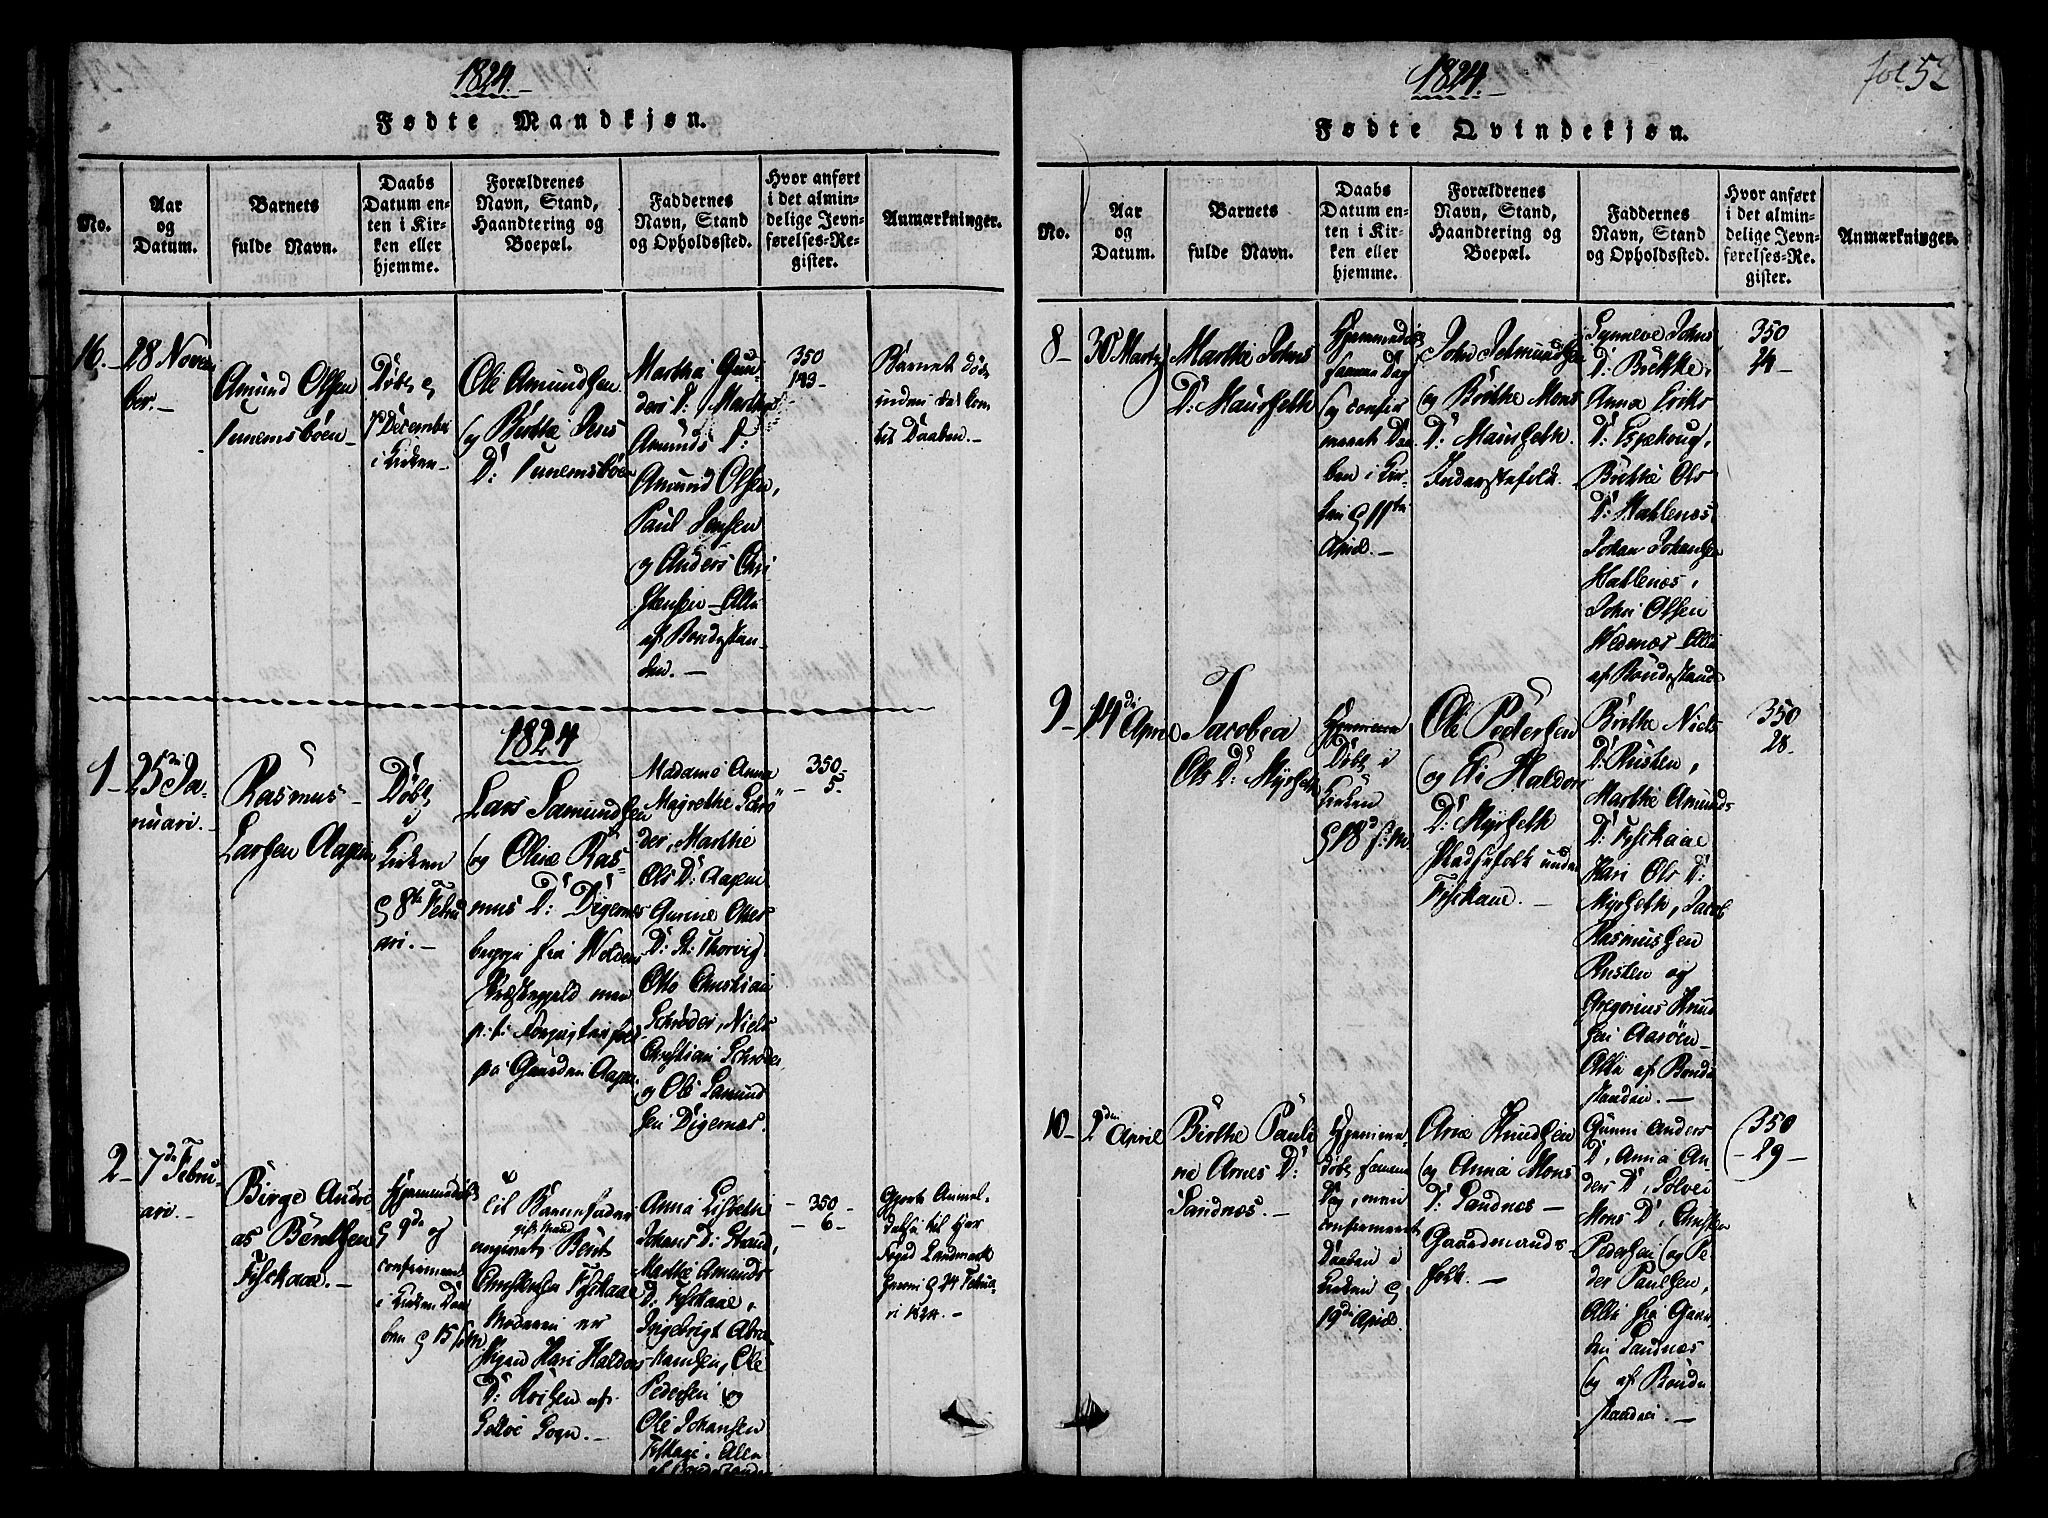 1824.
Fødte Mandkjøn.
No.
Aar
og
Datum.
Barnets
fulde Navn.
Daabs
Datum en-
ten i Kir-
ken eller
hjemme.
Forældrenes
Navn, Stand,
Haandtering og
Boepæl.
Faddernes
Navn, Stand
og Opholdssted.
Hvor anført
i det almin-
delige Jevn-
førelses-Re-
gister.
Anmærkninger.
16.
28 Novem
ber.
Amund Olsen
Døbt
7 December
i Kirken
Ole Amundsen
og Birthe
D:
Marthe Gun
ders D: Marthe
Amunds D:
Amund Olsen,
Paul Jensen
og Anders Chri
stensen - Alle
af Bondestan-
den.
350
143
Barnet døbt
inden det kom
til Daaben.
1824
1
25de Ja-
nuari.
Rasmus
Larsen Aagen
Døbt
i
Kirken
8de Febru
ari.
Lars Samundsen
og Oline Ras-
mus D: Digernæs
begge fra Wolden
Præstegjeld men
p: t:
paa Gaarden Aagen
Madame Anna
Magrethe Schrø
der, Marthe
Ols D: Aagen
Gurine Ottes
D: St: Thorvig
Otto Christian
Schrøder, Niels
Christian Schrøder
og Ole Samund
sen Digernæs.
350
5.
2
7de Febru
ari.
Birge Andre
as Berntsen
Fiskaae.
Hjemmedøbt
9de og
confirmeret
i Kirken Daa
ben 15
til Barnefader
angivet gift Mand Bernt
Christensen Fiskaae
Moderen er
Pigen Kari Haldors
D:
af
Sogn.
Anna Lisbeth
Johans D: Strand,
Marthe Amunds
D: Fiskaae,
Ingebrigt Abra
hamsen, Ole
Pedersen og
Ole Johansen
Alle
350
6
Gjort Anmel-
delse til Hr
Foged Landmark
24 Februa
ri 1824.
1824.
fol 52
Fødte Qvindekjøn.
No.
Aar
og
Datum.
Barnets
fulde Navn.
Daabs
Datum en-
ten i Kir-
ken eller
hjemme.
Forældrenes
Navn, Stand,
Haandtering og
Boepæl.
Faddernes
Navn, Stand
og Opholdssted.
Hvor anført
i det almin-
delige Jevn-
førelses-Re-
gister.
Anmærkninger.
8
30 Marty
Marthe Johns
D: Maursæth
Hjemmedøbt
samme Dag
og confir
meret Daa
ben i Kir-
ken 11te
April.
John Jetmundsen
og Birthe Mons
D: Maursæth
Inderstefolk.
Synneve Johns
D: Brekke,
Anna Eriks
D:
Birthe Ols
D: Hahlenæs
Johan Johansen
Hahlenæs,
John Olsen
Wedenæs Alle
af Bondestand
350
24
9
14de April
Jacobea
Ols D: Myrsæth
Hjemme
Døbt i
Kirken
18
Ole Pedersen
og Eli Haldors
D: Myrsæth
Pladsefolk under
Fiskaae.
Birthe Niels
D: Rusten,
Marthe Amunds
D: Fiskaae
Kari Ols D:
Myrsæth, Jacob
Rasmussen
Rusten og
Gregorius Knud
sen Aarsøen
Alle af Bonde
standen.
350
28.
10
2den April
Birthe Pauli
ne Arnes D:
Sandnæs.
Hjemme
døbt samme
Dag, men
confirmeret
Daaben i
Kirken
19de April
Arne Knudsen
og Anna Mons
D: Sandnæs
Gaardmands-
folk.
Gunni Anders
D, Anna An
ders D, Solvei
Mons D, Christen
Pedersen og Pe-
der Paulsen,
Alle fra Gaar
den Sandnæs
og af Bonde
standen.
350
29